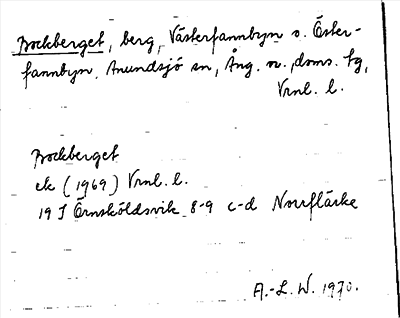 Bockberget, berg, Västerfannbyn o. Öster-
fannbyn, Anundsjö sn, Ång. n. doms. fg,
Vrnl. l.
Bockberget
ek (1969) Vrnl. l.
19 J Örnsköldsvik 8-9 c-d Norrflärke
A.-L. W. 1970.